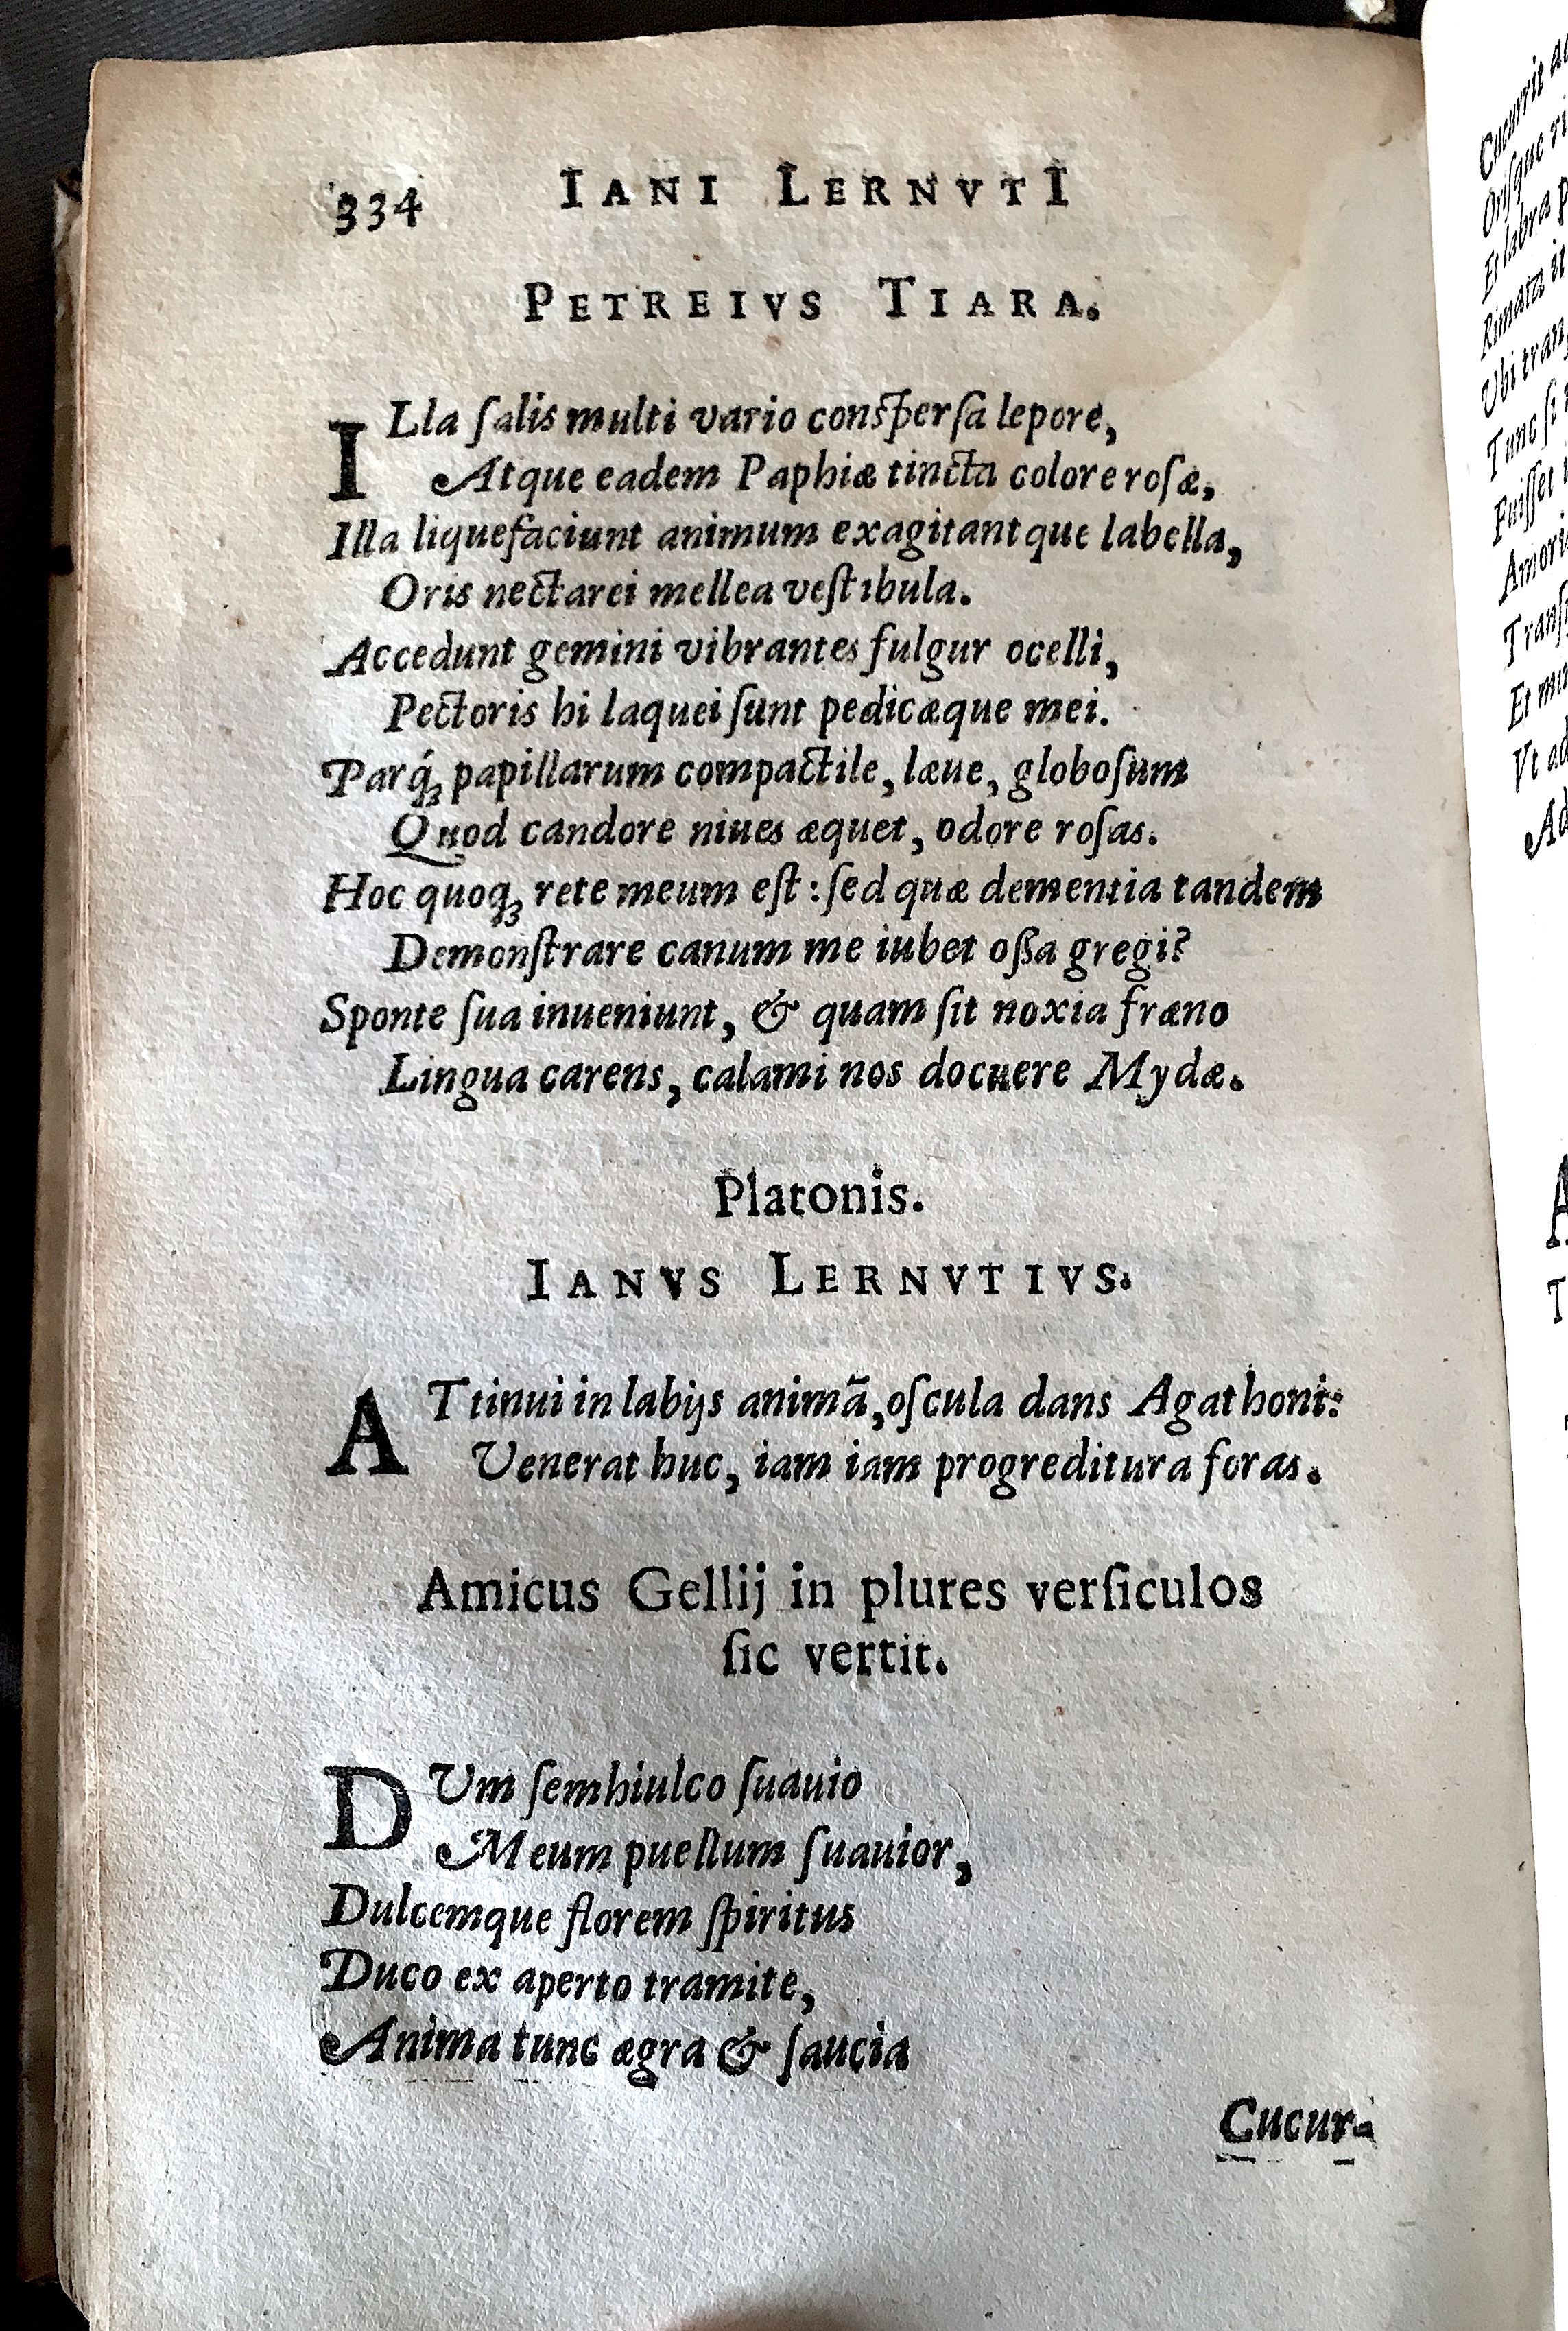 334 IANI LERNVTI
PETREIVS TIARA.
ILla ſalis multi vario conſperſa lepore,
Atque eadem Paphiæ tincta colore roſæ,
Illa liquefaciunt animum exagitantque labella,
Oris nectarei mellea veſtibula.
Accedunt gemini vibrantes fulgur ocelli,
Pectoris hi laquei ſunt pedicæque mei.
Parq́ꝫ papillarum compactile, læue, globoſum
Quod candore niues æquet, odore roſas.
Hoc quoqꝫ rete meum eſt: ſed quæ dementia tandem
Demonſtrare canum me iubet oſſa gregi?
Sponte ſua inueniunt, & quam ſit noxia fræno
Lingua carens, calami nos docuere Mydæ.
Platonis.
IANVS LERNVTIVS.
ATtinui in labijs animā, oſcula dans Agathoni:
Venerat huc, iam iam progreditura foras.
Amicus Gellij in plures verſiculos
ſic vertit.
DVm ſemhiulco ſuauio
Meum puellum ſuauior,
Dulcemque florem ſpiritus
Duco ex aperto tramite,
Anima tunc ægra & ſaucia
Cucur-
Cucurrit
Oriſque
Et labra
Rimata
Vbi
Tunc ſi
Fuiſſet
Et
Vt